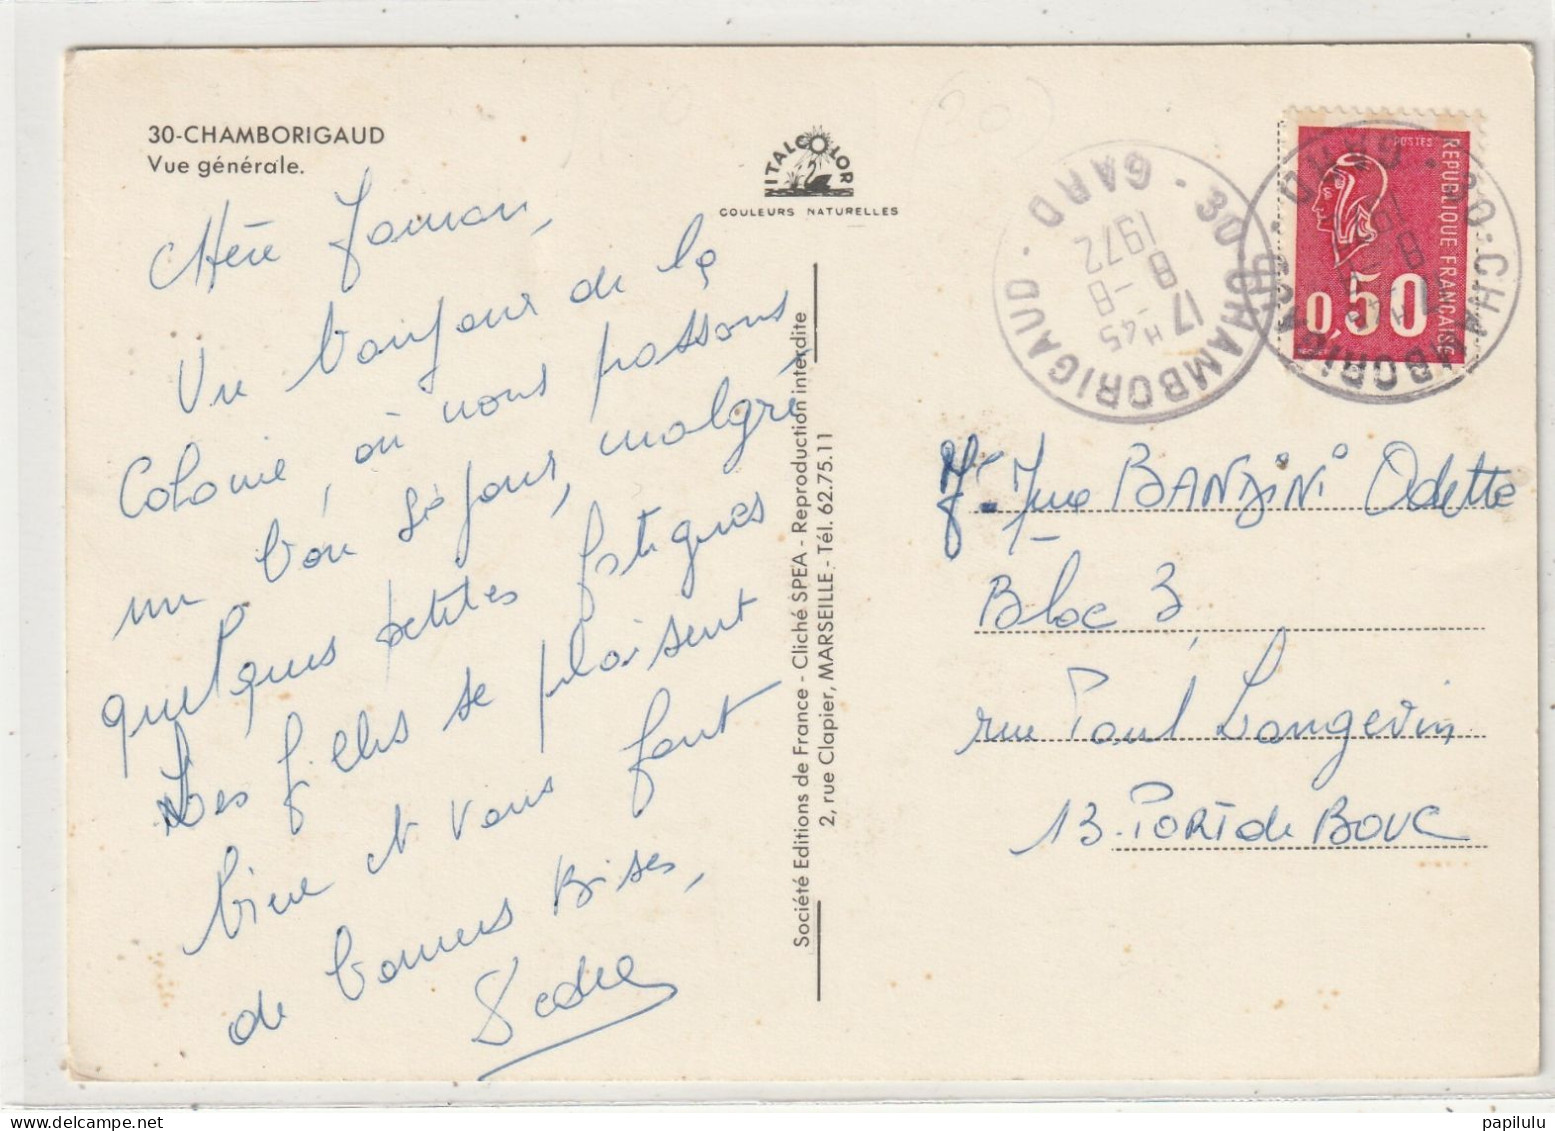 30-CHAMBORIGAUD
Vue générale.
ITALCOLOR
COULEURS NATURELLES
Un bonjour de la
Colonie, où nous passons
un bon séjour, malgré
quelques petites fatigues
Les filles se plaisent
bien et vous font
de bonnes Bises,
Société Editions de France - Cliché SPEA - Reproduction interdite
2, rue Clapier, MARSEILLE - Tél. 62.75.11
30-CHAMBORIGAUD - GARD
17 H45
8-8
1972
POSTES
REPUBLIQUE FRANÇAISE
0,50
30-CHAMBORIGAUD - GARD
Mme BANDINI Odette
Bloc 3
rue Paul Langevin
13-PORT de BOUC
papilulu